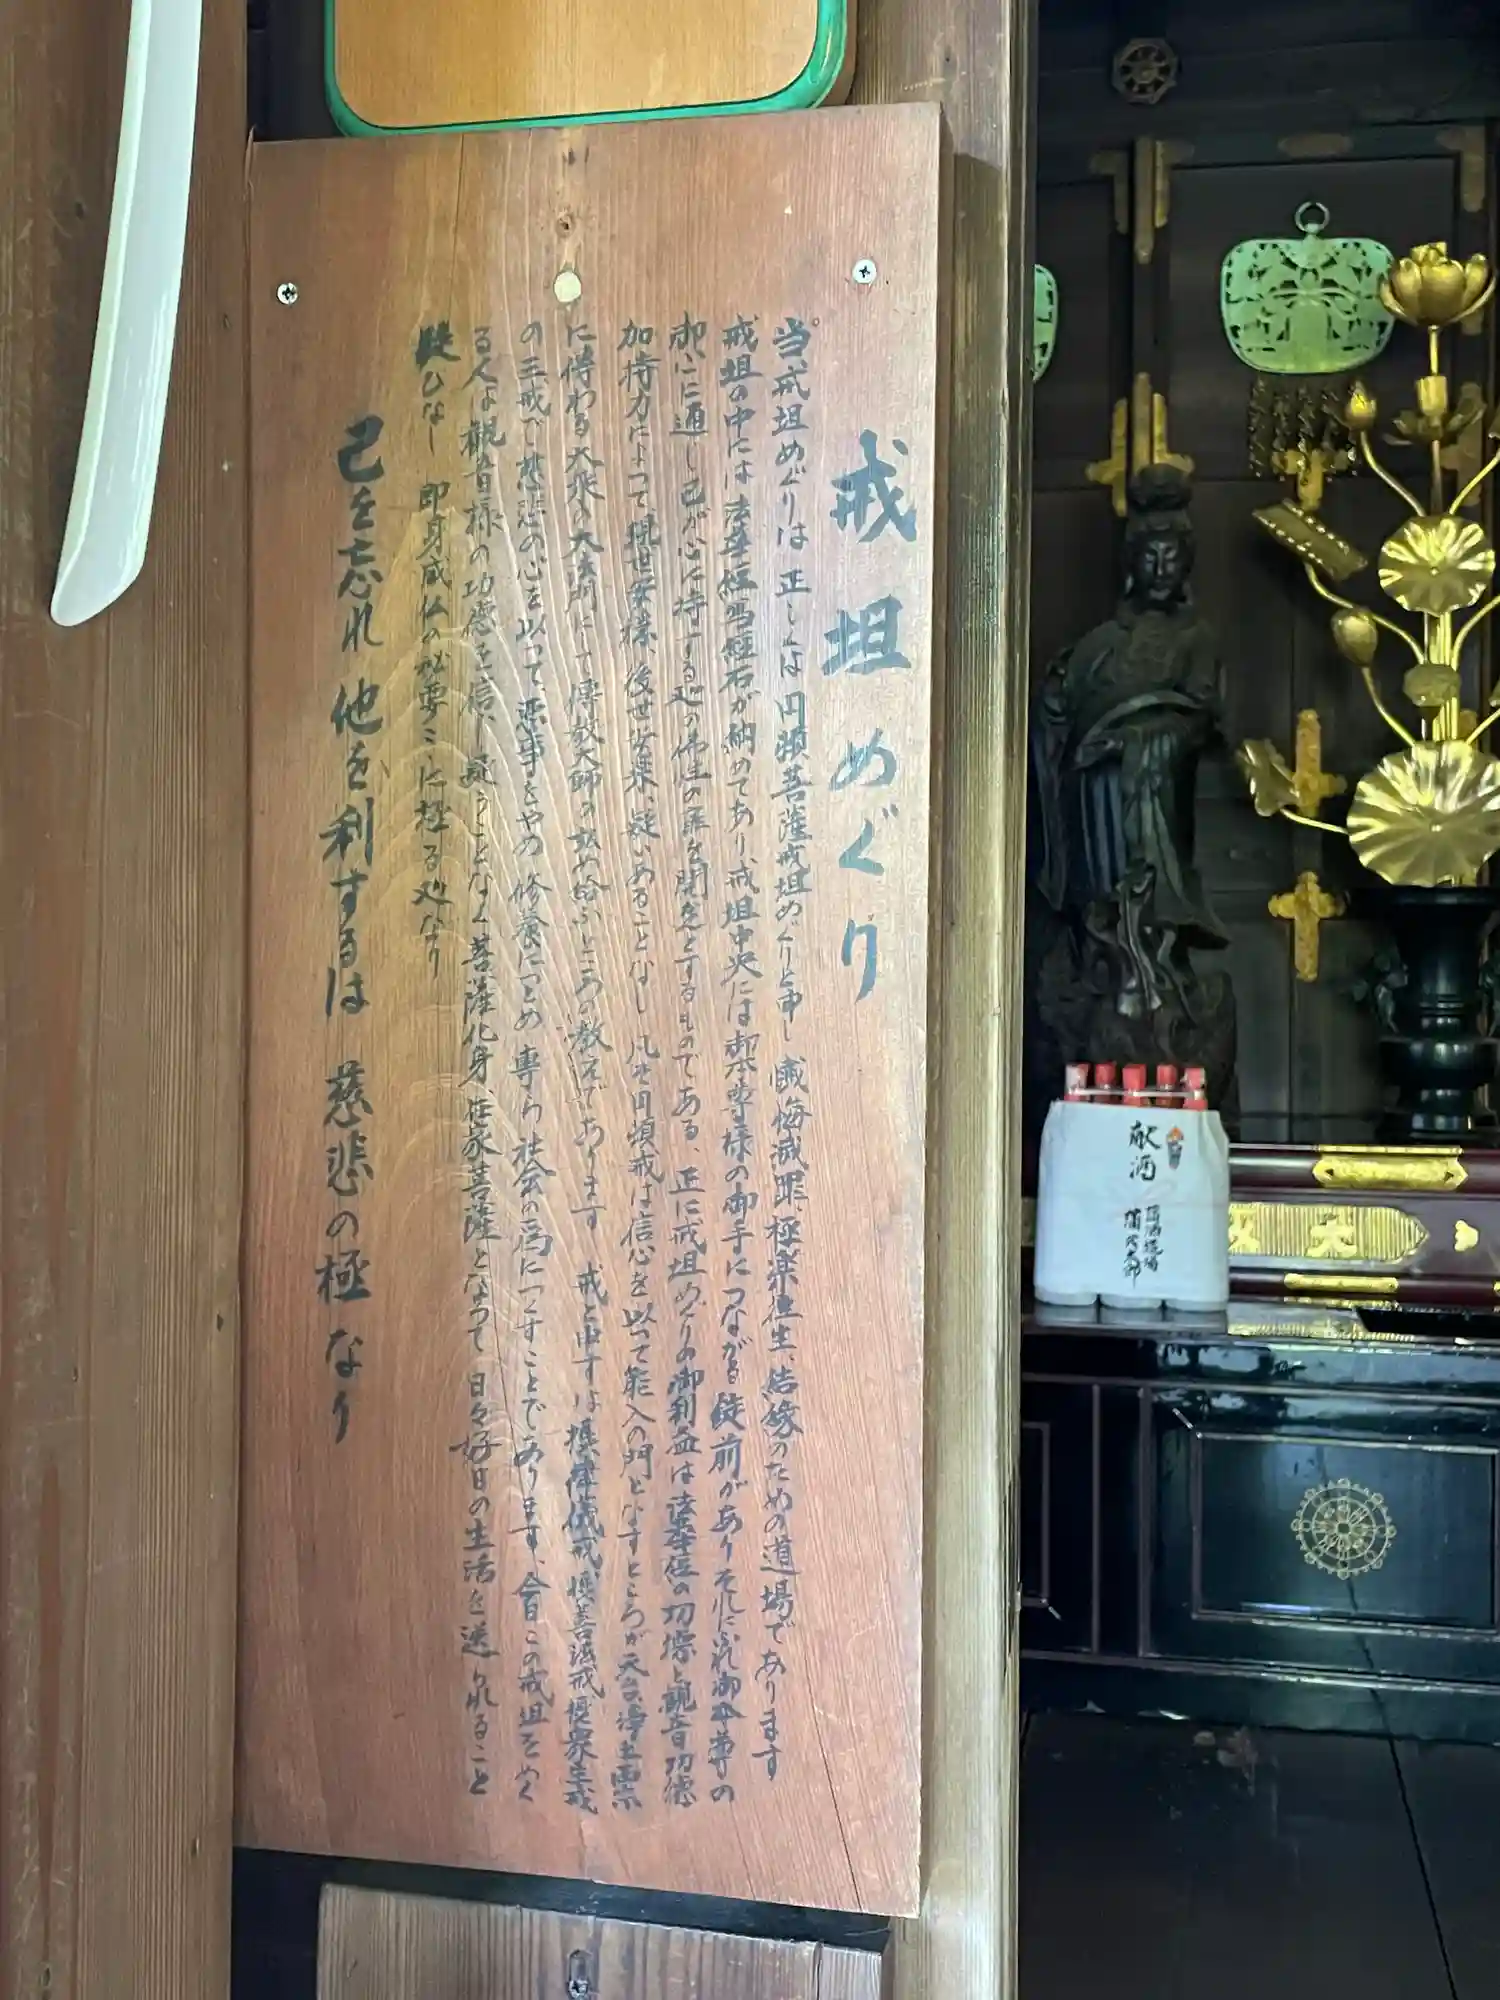 戒坦めぐり
当戒坦めぐりは 正しくは円頓菩薩戒坦めぐりと申し 懺悔滅罪、極楽往生、結縁のための道場であります
戒坦の中には法華経写経石が納めてあり、戒坦中央には御本尊様の御手につながる錠前がありそれにふれ御本尊の
御心に通し己が心に持する処の佛性の扉を開
とするものである、正に戒坦めぐりの御利益は法華経の功
と観音功徳
加持力によつて、現世安穏、後世安楽、疑いあることなし 凡そ円頓戒は信心を以つて能入の門となすところが天台浄土両宗
に傳わる大乗の大法門にして傳教大師の弘め給ふところの教えであります 戒と申すは摂律儀戒、摂善法戒、饒益衆生戒
の三戒で慈悲の心を以つて、悪事をやめ 修養につとめ 専ら社会の為につくすことであります、今日この戒坦をめぐ
る人は観音様の功徳を信じ疑うことなく菩薩化身、在家菩薩となつて 日々好日の生活を送られること
疑ひなし 即身成仏の秘要こゝに極る処なり
己を忘れ 他を利するは 慈悲の極なり
献酒